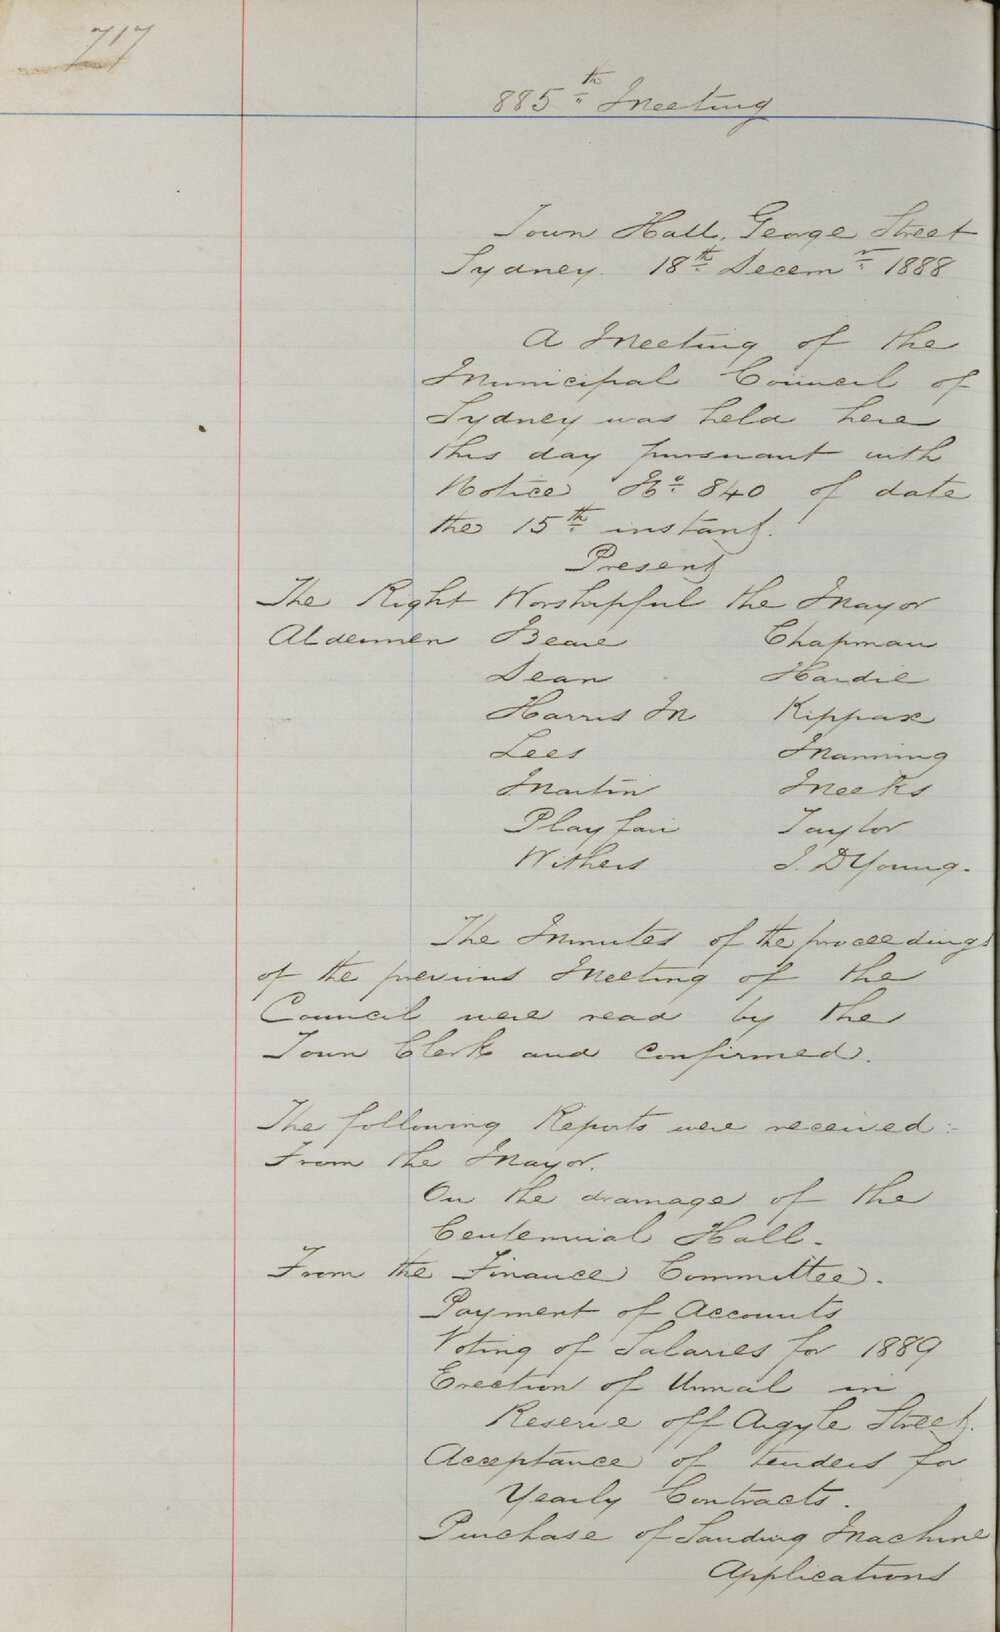 717
885th Meeting
Town Hall, George Street
Sydney. 18th Decemr 1888
A Meeting of the
Municipal Council of
Sydney was held here
this day pursuant with
Notice No 840 of date
the 15th instant.
Present
The Right Worshipful the Mayor
Aldermen Beare Chapman
Dean Hardie
Harris Jn Kippax
Lees Manning
Martin Meeks
Playfair Taylor
Withers J. D Young.
The Minutes of the proceedings
of the previous Meeting of the
Council were read by the
Town Clerk and confirmed.
The following Reports were received:-
From the Mayor.
On the drainage of the
Centennial Hall.
From the Finance Committee.
Payment of Accounts
Voting of Salaries for 1889
Erection of Urinal in
Reserve off Argyle Street.
Acceptance of tenders for
Yearly Contracts.
Purchase of Sanding Machine
Applications